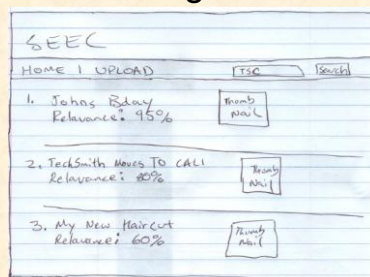 SEEC
HOME | UPLOAD TSC Search
1. Johns Bday
Relavance: 95%
Thumb
Nail
2. TechSmith Moves To CALI
Relavance: 80%
Thumb
Nail
3. My New Haircut
Relavance: 60%
Thumb
Nail